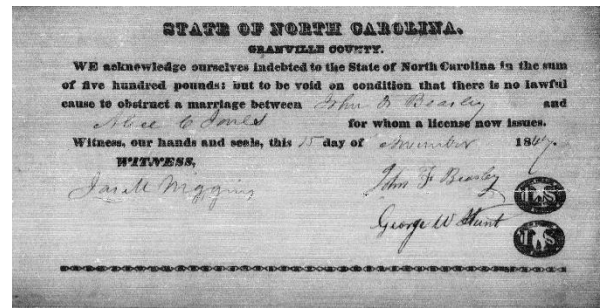 STATE OF NORTH CAROLINA.
GRANVILLE COUNTY.
WE acknowledge ourselves indebted to the State of North Carolina in the sum
of five hundred pounds; but to be void on condition that there is no lawful
cause to obstruct a marriage between John F Beasley and
C Jones for whom a license now issues.
Witness, our hands and seals, this 15 day of November 1847.
WITNESS,
Jas M Wiggins
John F Beasley
LS
George W Hunt
LS